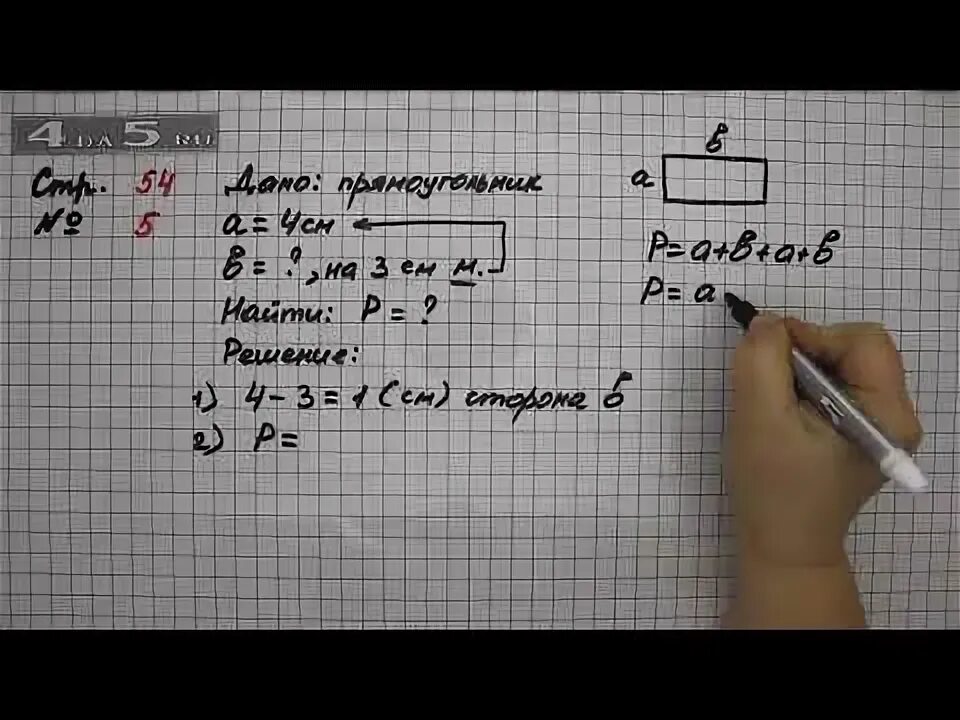 4 для 5.ru
Стр. 54
№ 5
Дано: прямоугольник
a = 4 см
в = ?, на 3 см м.
Найти: P = ?
Решение:
1) 4 - 3 = 1 (см) сторона в
2) P =
в
a
P = a + в + a + в
P = a